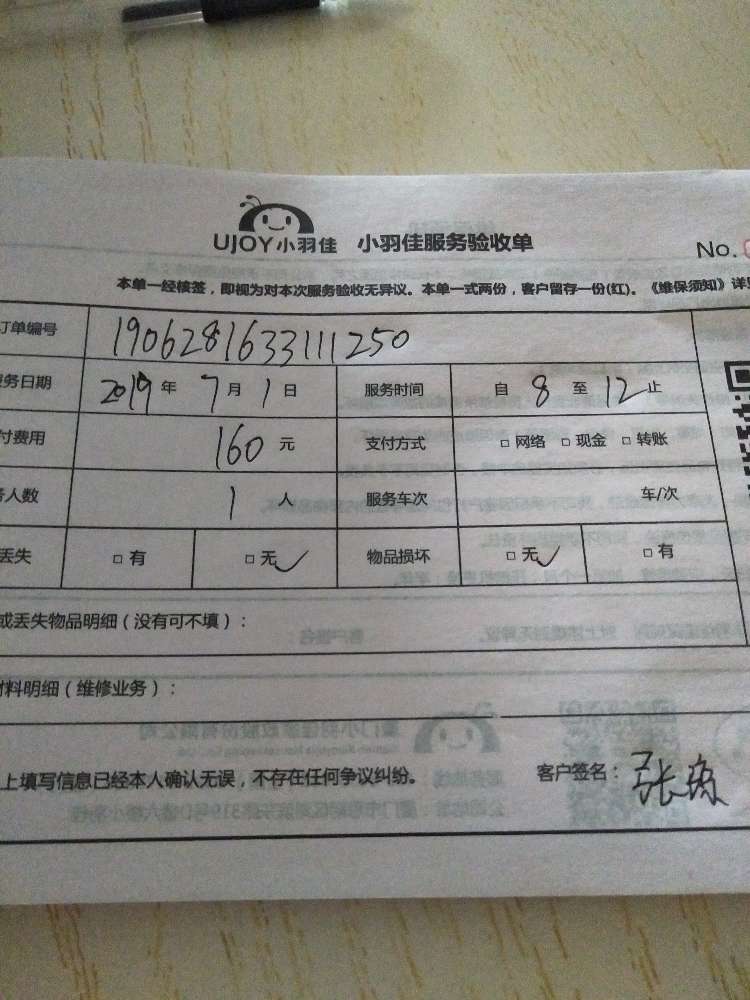 UJOY小羽佳 小羽佳服务验收单
No.
本单一经核签，即视为对本次服务验收无异议。本单一式两份，客户留存一份(红)。《维保须知》详
订单编号 1906281633111250
务日期 2019年7月1日 服务时间 自8至12止
付费用 160元 支付方式 □网络 □现金 □转账
人数 1人 服务车次 车/次
丢失 □有 □无✓ 物品损坏 □无✓ □有
或丢失物品明细（没有可不填）：
材料明细（维修业务）：
上填写信息已经本人确认无误，不存在任何争议纠纷。 客户签名：张